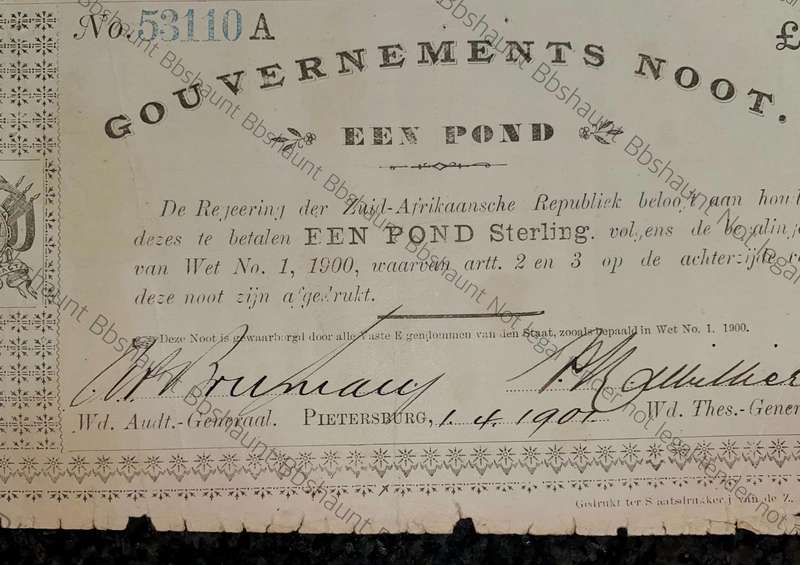 No. 53110 A
£
GOUVERNEMENTS NOOT.
EEN POND
De Regeering der Zuid-Afrikaansche Republiek belooft aan
dezes te betalen EEN POND Sterling. volgens de
van Wet No. 1, 1900, waarvan artt. 2 en 3 op de achterzijde
deze noot zijn afgedrukt.
Deze Noot is gewaarborgd door alle Vaste Eigendommen van den Staat, zooals bepaald in Wet No. 1. 1900.
Wd. Audt.-Generaal. PIETERSBURG, 1.4.1901. Wd. Thes.-Gener
Gedrukt ter Staatsdrukkerij van de Z.
Bbshaunt Not legal tender